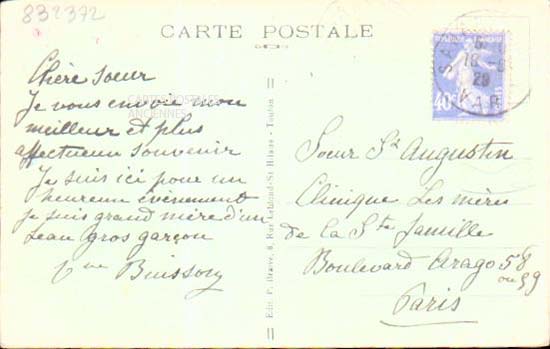 832372
CARTE POSTALE
Chère soeur
Je vous envoie mon
meilleur et plus
affectueux souvenir
Je suis ici pour un
heureux évènement
je suis grand mère d'un
beau gros garçon
Vve Buisson
CARTES POSTALES
ANCIENNES
Edit. P. 8, Rue Leblond-St Hilaire - Toulon
40c
VAR
29
Soeur St Augustin
Clinique Les mères
de la Ste famille
Boulevard Arago 58
ou 59
Paris